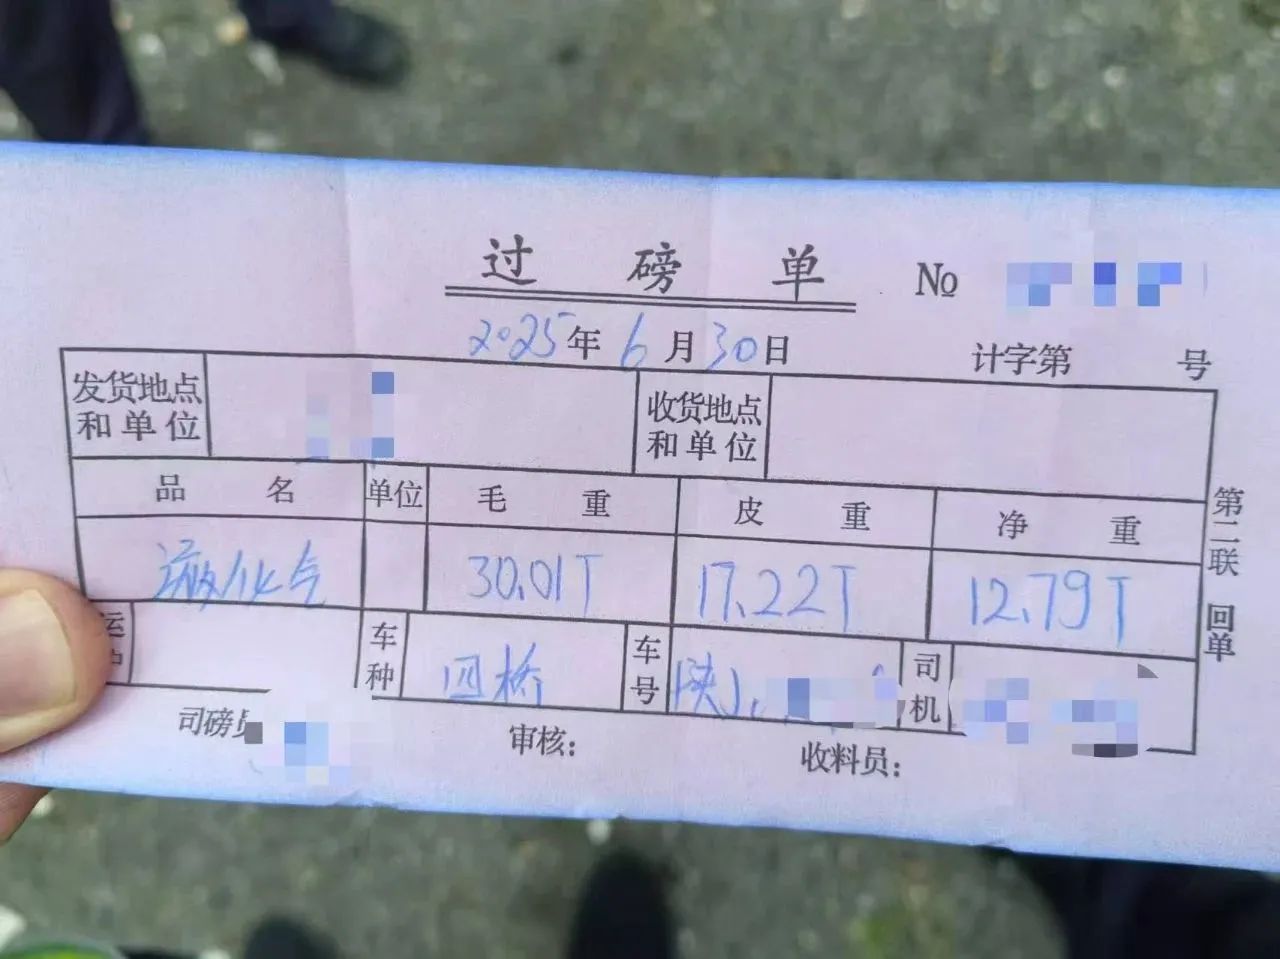 过磅单 №
2025年6月30日 计字第 号
发货地点和单位 收货地点和单位
品名 单位 毛重 皮重 净重
液化气 30.01T 17.22T 12.79T
运 车种 四桥 车号 陕J 司机
司磅员 审核： 收料员：
第二联 回单